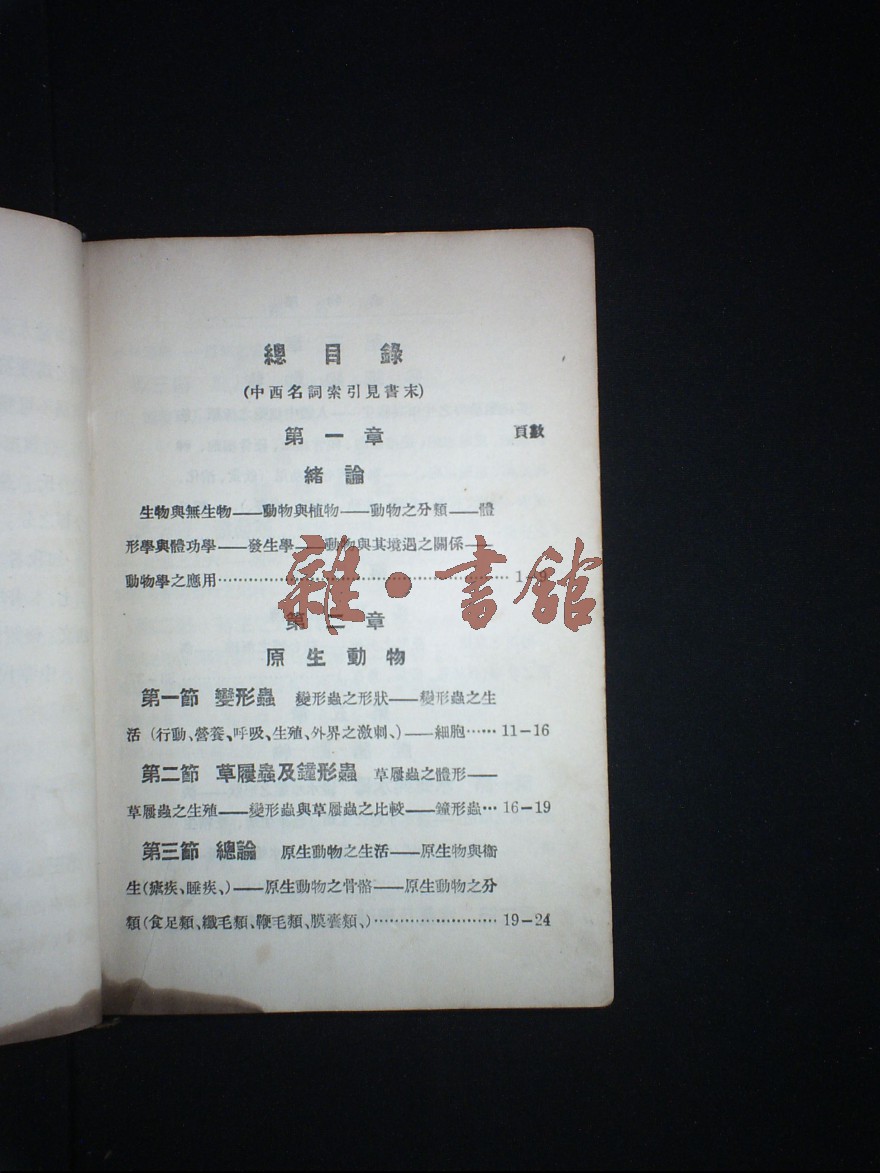 總目錄
(中西名詞索引見書末)
第一章 頁數
緒論
生物與無生物——動物與植物——動物之分類——體
形學與體功學——發生學——動物與其境遇之關係—
動物學之應用…………………………………………1-9
雜·書館
第二章
原生動物
第一節 變形蟲 變形蟲之形狀——變形蟲之生
活(行動、營養、呼吸、生殖、外界之激刺、)——細胞……11-16
第二節 草履蟲及鐘形蟲 草履蟲之體形——
草履蟲之生殖——變形蟲與草履蟲之比較——鐘形蟲…16-19
第三節 總論 原生動物之生活——原生物與衞
生(瘵疾、睡疾、)——原生動物之骨骼——原生動物之分
類(食足類、纖毛類、鞭毛類、膜囊類、)……………………19-24